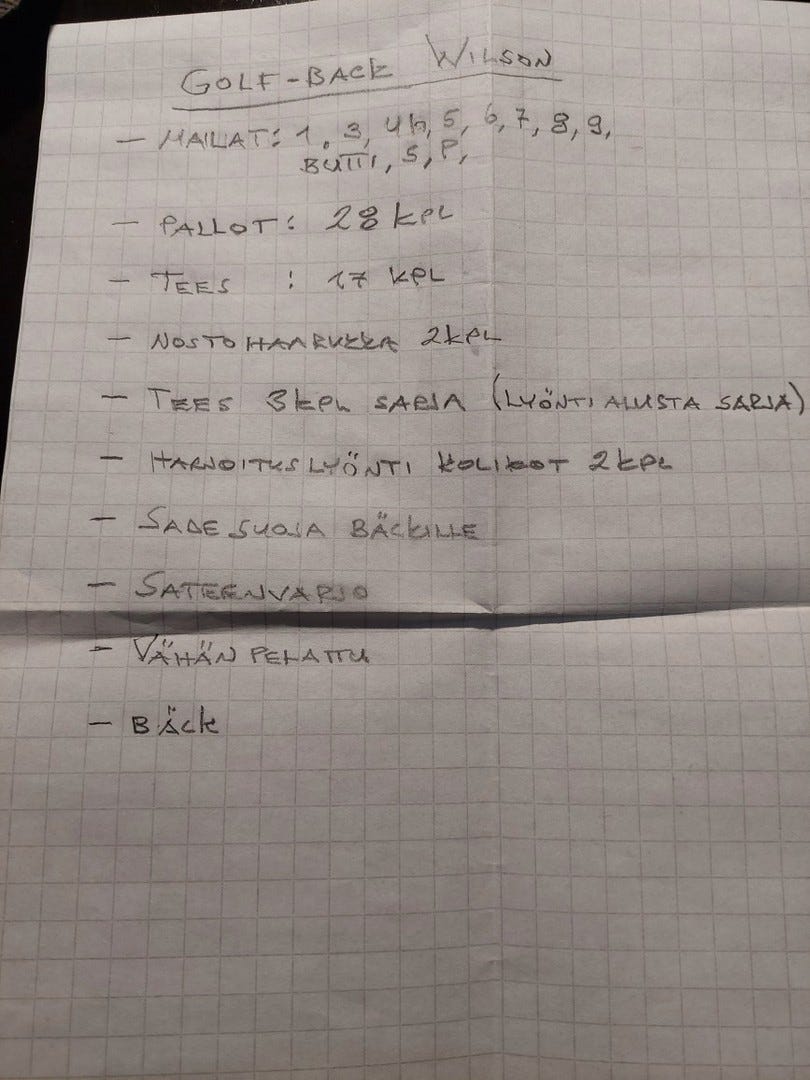 GOLF-BACK WILSON
- MAILAT: 1, 3, 4h, 5, 6, 7, 8, 9,
BUTTI, S, P,
- PALLOT: 28 kPL
- TEES : 17 kPL
- NOSTOHAARUKKA 2kPL
- TEES 3kPL SARJA (LYÖNTIALUSTA SARJA)
- HARJOITUSLYÖNTI KOLIKOT 2kPL
- SADESUOJA BÄCKILLE
- SATEENVARJO
- VÄHÄN PELATTU
- BÄCK